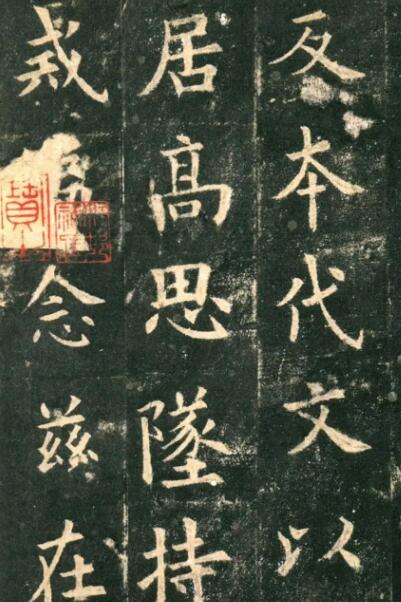 反本代文以
居髙思墜持
戒念茲在